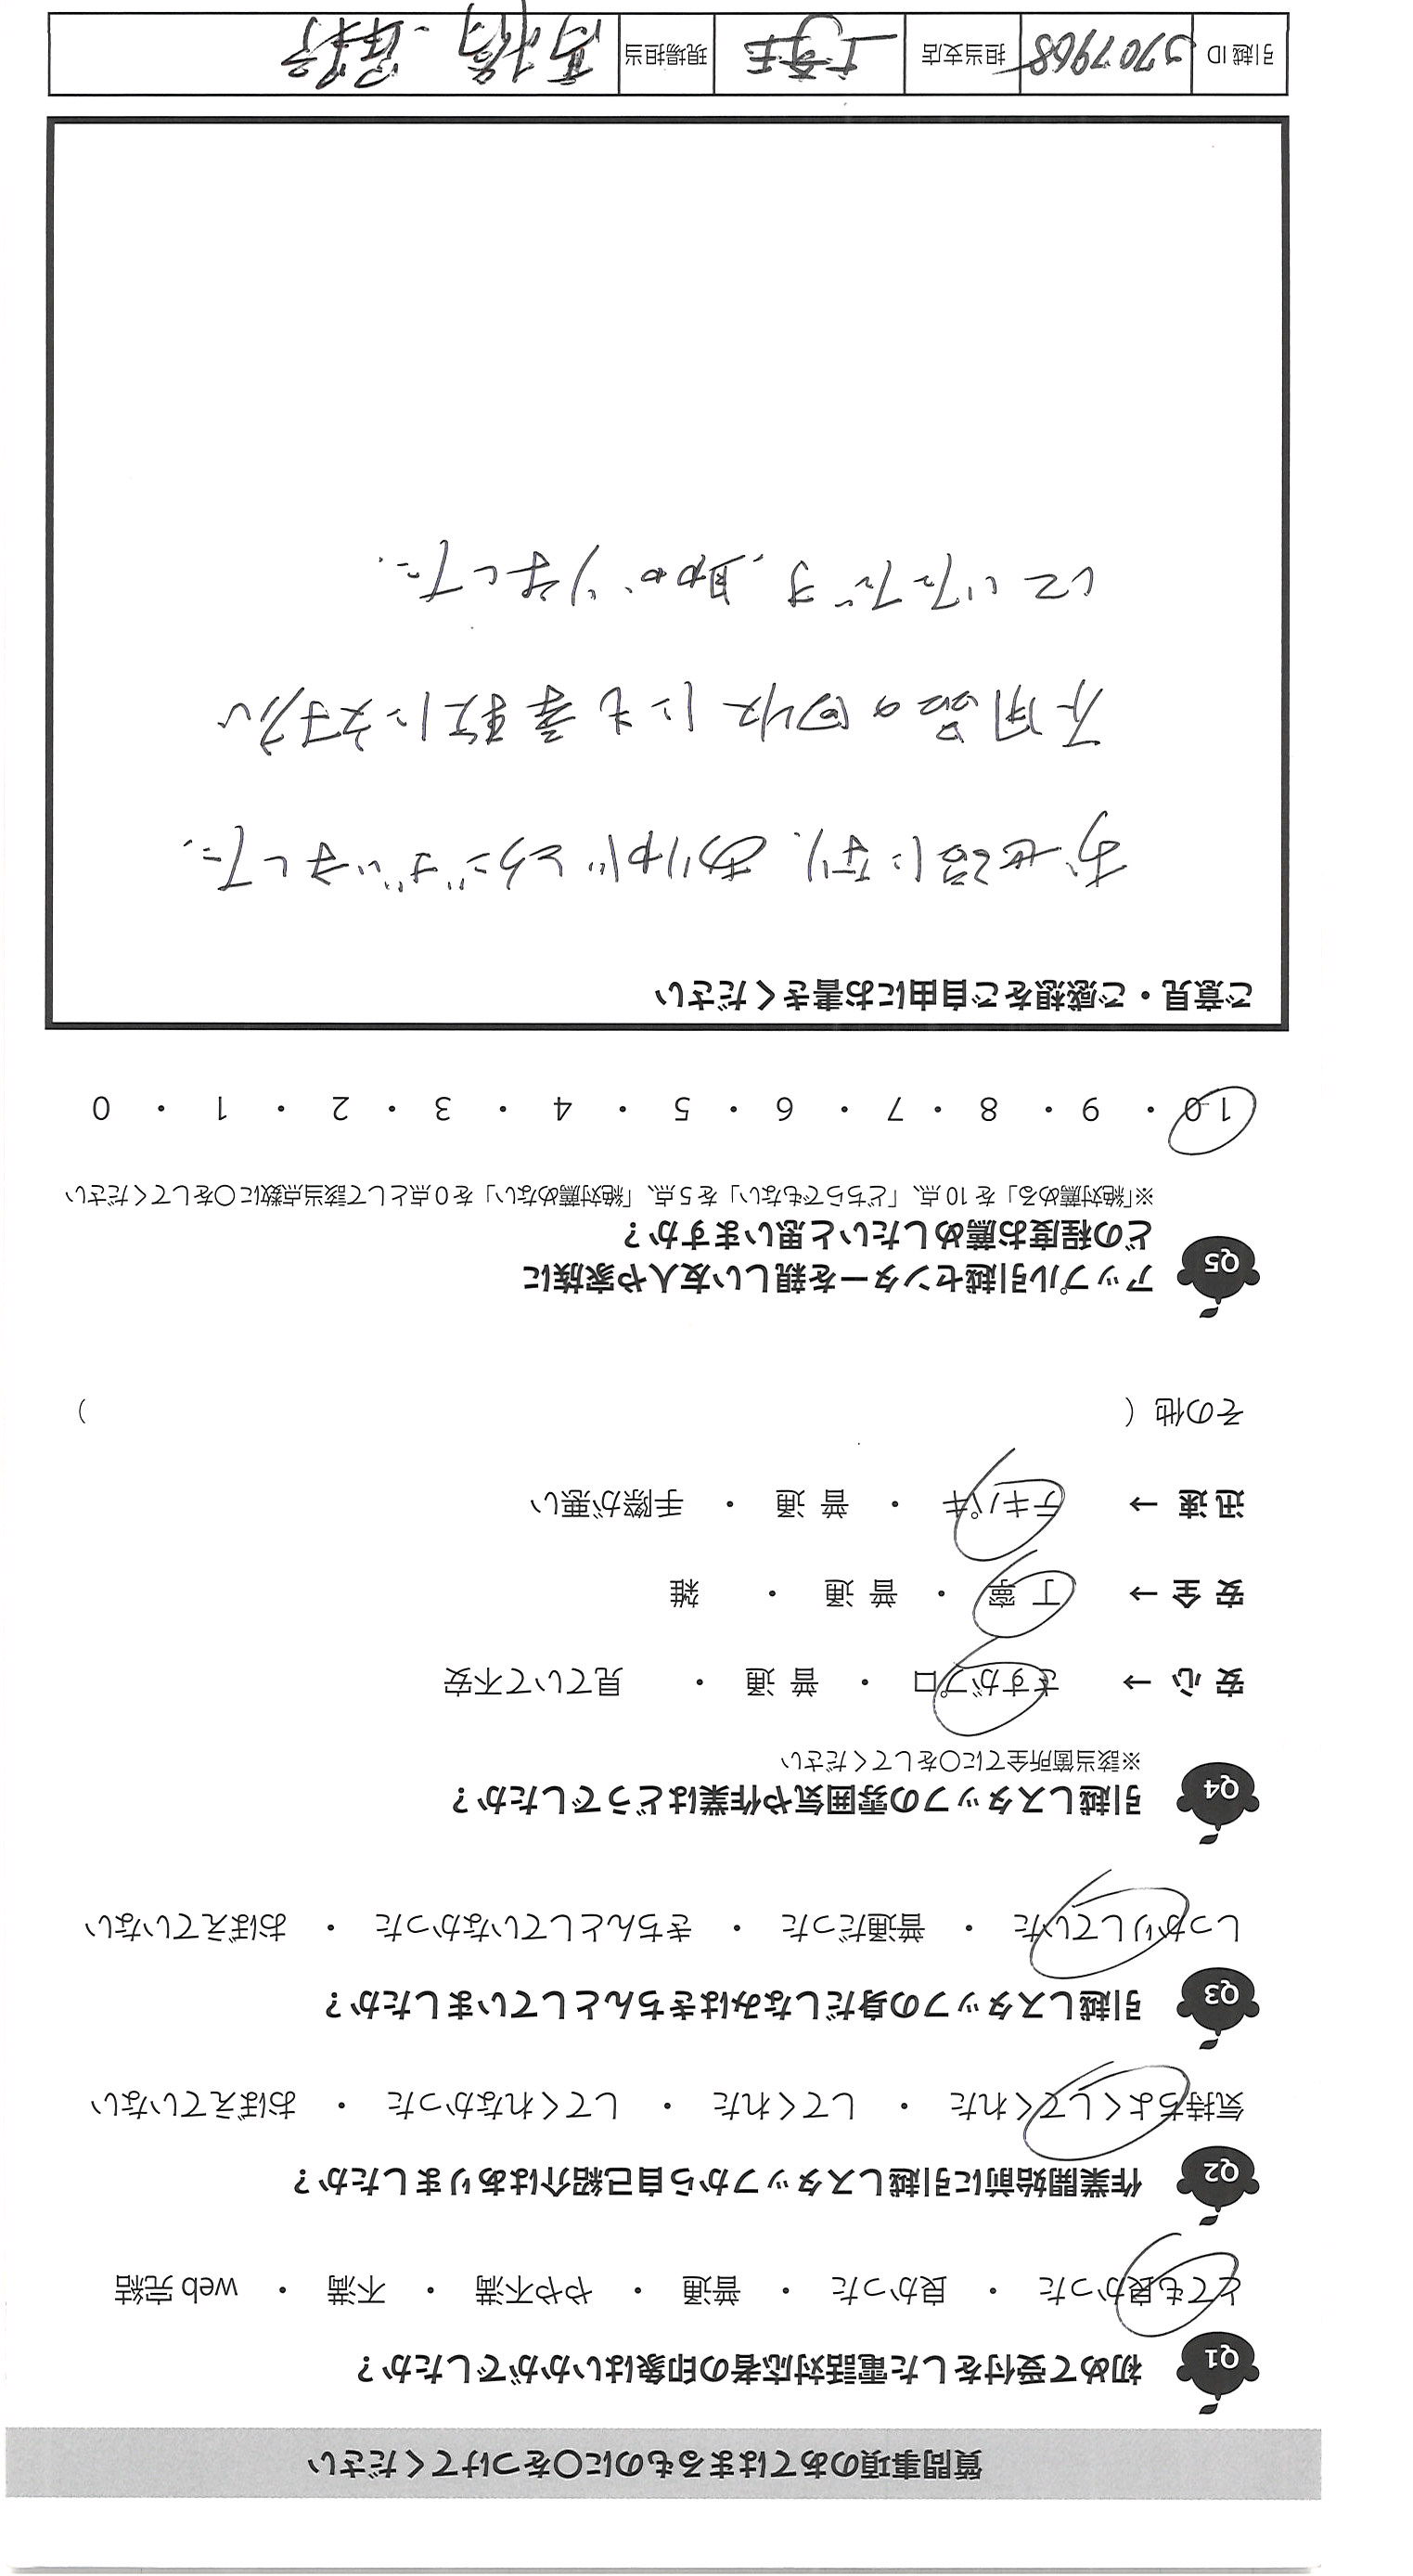 質問事項のあてはまるものに○をつけてください
Q1 初めて受付をした電話対応者の印象はいかがでしたか？
とても良かった ・ 良かった ・ 普通 ・ やや不満 ・ 不満 ・ web 完結
Q2 作業開始前に引越しスタッフから自己紹介はありましたか？
気持ちよくしてくれた ・ してくれた ・ してくれなかった ・ おぼえていない
Q3 引越しスタッフの身だしなみはきちんとしていましたか？
しっかりしていた ・ 普通だった ・ きちんとしていなかった ・ おぼえていない
Q4 引越しスタッフの雰囲気や作業はどうでしたか？
※該当箇所全てに○をしてください
安 心 → さすがプロ ・ 普 通 ・ 見ていて不安
安 全 → 丁 寧 ・ 普 通 ・ 雑
迅 速 → テキパキ ・ 普 通 ・ 手際が悪い
その他（ ）
Q5 アップル引越センターを親しい友人や家族に
どの程度お薦めしたいと思いますか？
※「絶対薦める」を 10 点、「どちらでもない」を 5 点、「絶対薦めない」を 0 点として該当点数に○をしてください
10 ・ 9 ・ 8 ・ 7 ・ 6 ・ 5 ・ 4 ・ 3 ・ 2 ・ 1 ・ 0
ご意見・ご感想をご自由にお書きください
お世話になり、ありがとうございました。
不用品の回収にも柔軟に対応
していただき、助かりました。
引越 ID 3707968 担当支店 現場担当 高橋